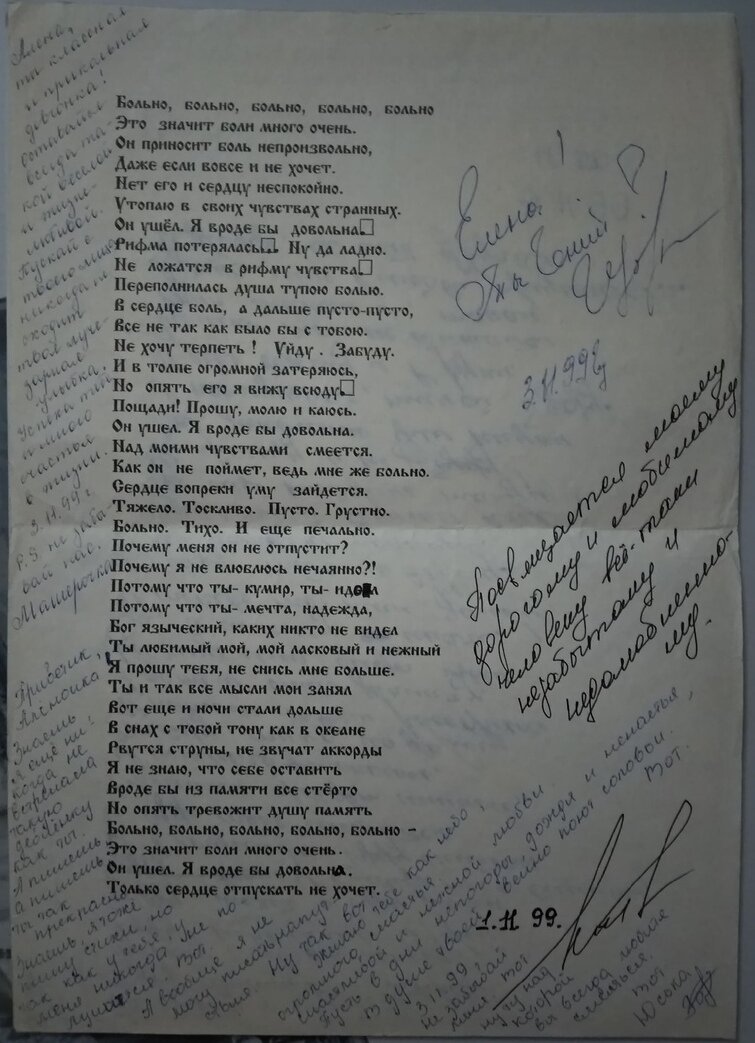 Алена,
ты классная
и прикольная
девчонка!
Оставайся
всегда та-
кой веселой
и жизне-
любивой.
Пускай с
твоего лица
никогда не
сходит
твоя луче-
зарная
улыбка.
Успеха тебе
и много
счастья
в жизни.
3.11.99г.
P.S. не забы-
вай нас.
Машерочка
Больно, больно, больно, больно, больно
Это значит боли много очень.
Он приносит боль непроизвольно,
Даже если вовсе и не хочет.
Нет его и сердцу неспокойно.
Утопаю в своих чувствах странных.
Он ушёл. Я вроде бы довольна
Рифма потерялась Ну да ладно.
Не ложатся в рифму чувства
Переполнилась душа тупою болью.
В сердце боль, а дальше пусто-пусто,
Все не так как было бы с тобою.
Не хочу терпеть ! Уйду . Забуду.
И в толпе огромной затеряюсь,
Но опять его я вижу всюду
Пощади! Прошу, молю и каюсь.
Он ушел. Я вроде бы довольна.
Над моими чувствами смеется.
Как он не поймет, ведь мне же больно.
Сердце вопреки уму зайдется.
Тяжело. Тоскливо. Пусто. Грустно.
Больно. Тихо. И еще печально.
Почему меня он не отпустит?
Почему я не влюблюсь нечаянно?!
Потому что ты- кумир, ты- идол
Потому что ты- мечта, надежда,
Бог языческий, каких никто не видел
Ты любимый мой, мой ласковый и нежный
Я прошу тебя, не снись мне больше.
Ты и так все мысли мои занял
Вот еще и ночи стали дольше
В снах с тобой тону как в океане
Рвутся струны, не звучат аккорды
Я не знаю, что себе оставить
Вроде бы из памяти все стёрто
Но опять тревожит душу память
Больно, больно, больно, больно, больно –
Это значит боли много очень.
Он ушел. Я вроде бы довольна.
Только сердце отпускать не хочет.
Елена!
Ты Гений
3.11.99г
Посвящается моему
дорогому и любимому
человеку всё-таки
незабытому и
недолюбленно-
му.
1.11 99.
Приветик,
Алёнойка
Знаешь
я ещё ни-
когда не
встречала
такую
девчёнку
как ты.
А пишешь
а пишешь
ты так
прекрасно
Знаешь я тоже
пишу стихи, но
так как у тебя у
меня никогда не по-
лучится. Вот.
А вообще я не
могу писать напут-
ствия. Ну так вот
Желаю тебе как небо
огромного счастья,
счастливой и нежной любви.
Пусть в дни непогоды дождя и ненастья,
в душе твоей вечно поют соловьи.
Вот.
3.11.99г
не забывай
меня вот
ту над
которой
вы всегда любили
смеяться.
Вот
Юська.